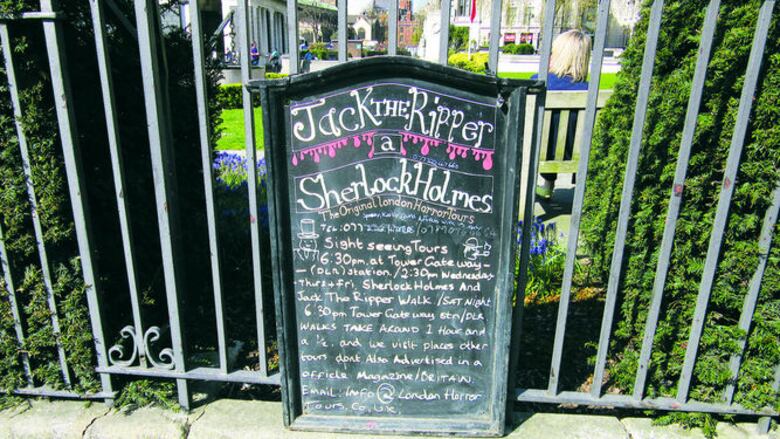 Jack The Ripper
a
Sherlock Holmes
The Original London Horror Tours
Sight seeing Tours
6:30pm. at Tower Gateway
(DLR) Station. / 2:30pm Wednesday
Thurs + Fri, Sherlock Holmes And
Jack The Ripper WALK / SAT Night
6.30pm Tower Gateway stn/DLR
WALKS TAKE AROUND 1 Hour and
a ½. and we visit places other
tours dont Also Advertised in a
officle Magazine/BRITAIN.
Email: Info@London Horror
Tours. Co, UK.